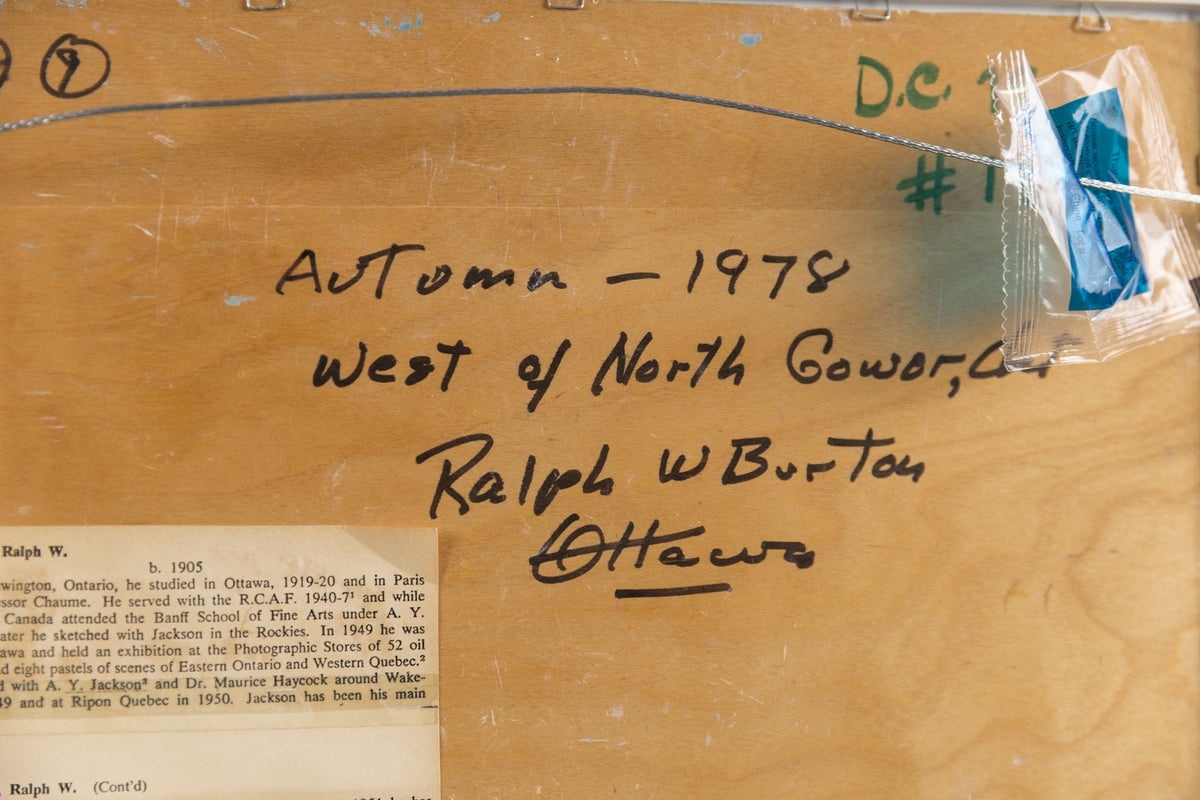 9
D.C.
#1
Autumn – 1978
West of North Gower,
Ralph W Burton
Ottawa
Ralph W.
b. 1905
wington, Ontario, he studied in Ottawa, 1919-20 and in Paris
ssor Chaume. He served with the R.C.A.F. 1940-7¹ and while
Canada attended the Banff School of Fine Arts under A. Y.
ater he sketched with Jackson in the Rockies. In 1949 he was
awa and held an exhibition at the Photographic Stores of 52 oil
d eight pastels of scenes of Eastern Ontario and Western Quebec.²
d with A. Y. Jackson³ and Dr. Maurice Haycock around Wake-
49 and at Ripon Quebec in 1950. Jackson has been his main
, Ralph W. (Cont'd)